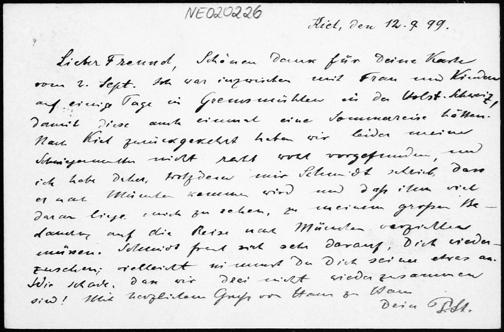 NE020226
Kiel, den 12.9.99.
Lieber Freund, Schönen Dank für Deine Karte
vom 2. Sept. Ich war inzwischen mit Frau und Kindern
auf einige Tage in Gremsmühlen in der Holst. Schweiz,
damit diese auch einmal eine Sommerreise hätten.
Nach Kiel zurückgekehrt haben wir leider meine
Schwiegermutter nicht recht wohl vorgefunden, und
ich habe daher, trotzdem mir Schmidt schrieb dass
er nach München kommen wird und dass ihm viel
daran liege mich zu sehen, zu meinem grossen Be-
dauern auf die Reise nach München verzichten
müssen. Schmidt freut sich sehr darauf, Dich wieder-
zusehen; vielleicht nimmst Du Dich seiner etwas an.
Wie schade, dass wir drei nicht wieder zusammen
sind! Mit herzlichem Gruss von Haus zu Haus
Dein P. St.